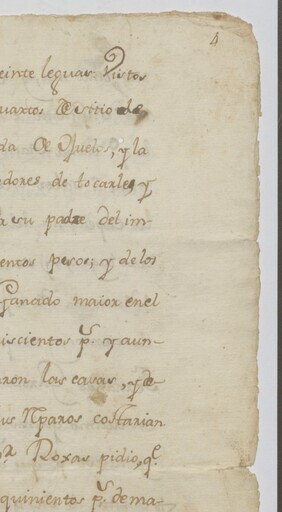 4
einte leguas: Vistos
uartos de sitio de
da de Ojuelos, y la
edores de tocarles y
a su padre del im-
entos pesos; y de los
Ganado maior en el
iscientos p.s y aun-
aron las casas, y de
us Nparos costarian
Roxas pidio, q.e
quinientos p.s de ma-